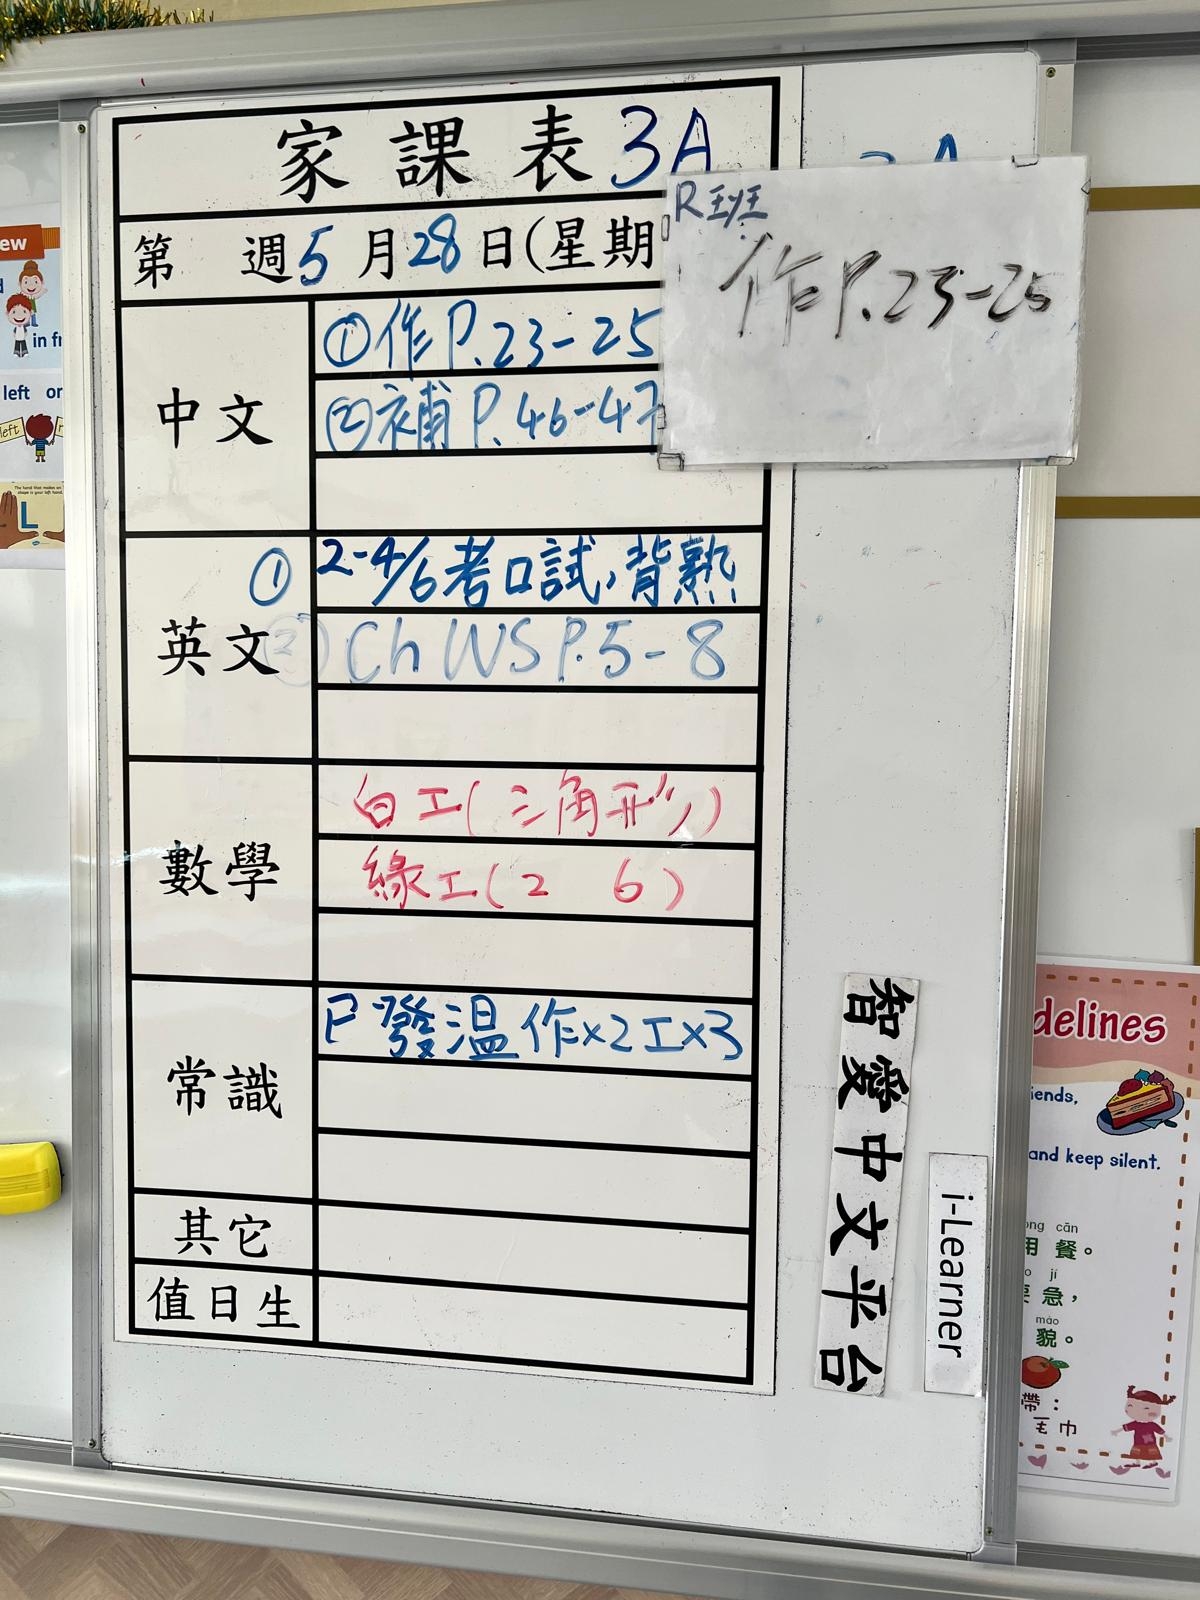 家課表3A
第 週5月28日(星期
R班
作P.23-25
中文
①作P.23-25
②補P.46-47
英文
① 2-4/6考口試,背熟
② Ch WS P.5-8
數學
白工(三角形)
綠工(2 6)
常識
P發溫 作×2工×3
其它
值日生
智愛中文平台
i-Learner
ew
in fr
left or
left
The hand that makes an
shape is your left hand.
L
delines
iends,
and keep silent.
ong cān
用餐。
jí
急,
mào
貌。
帶:
毛巾